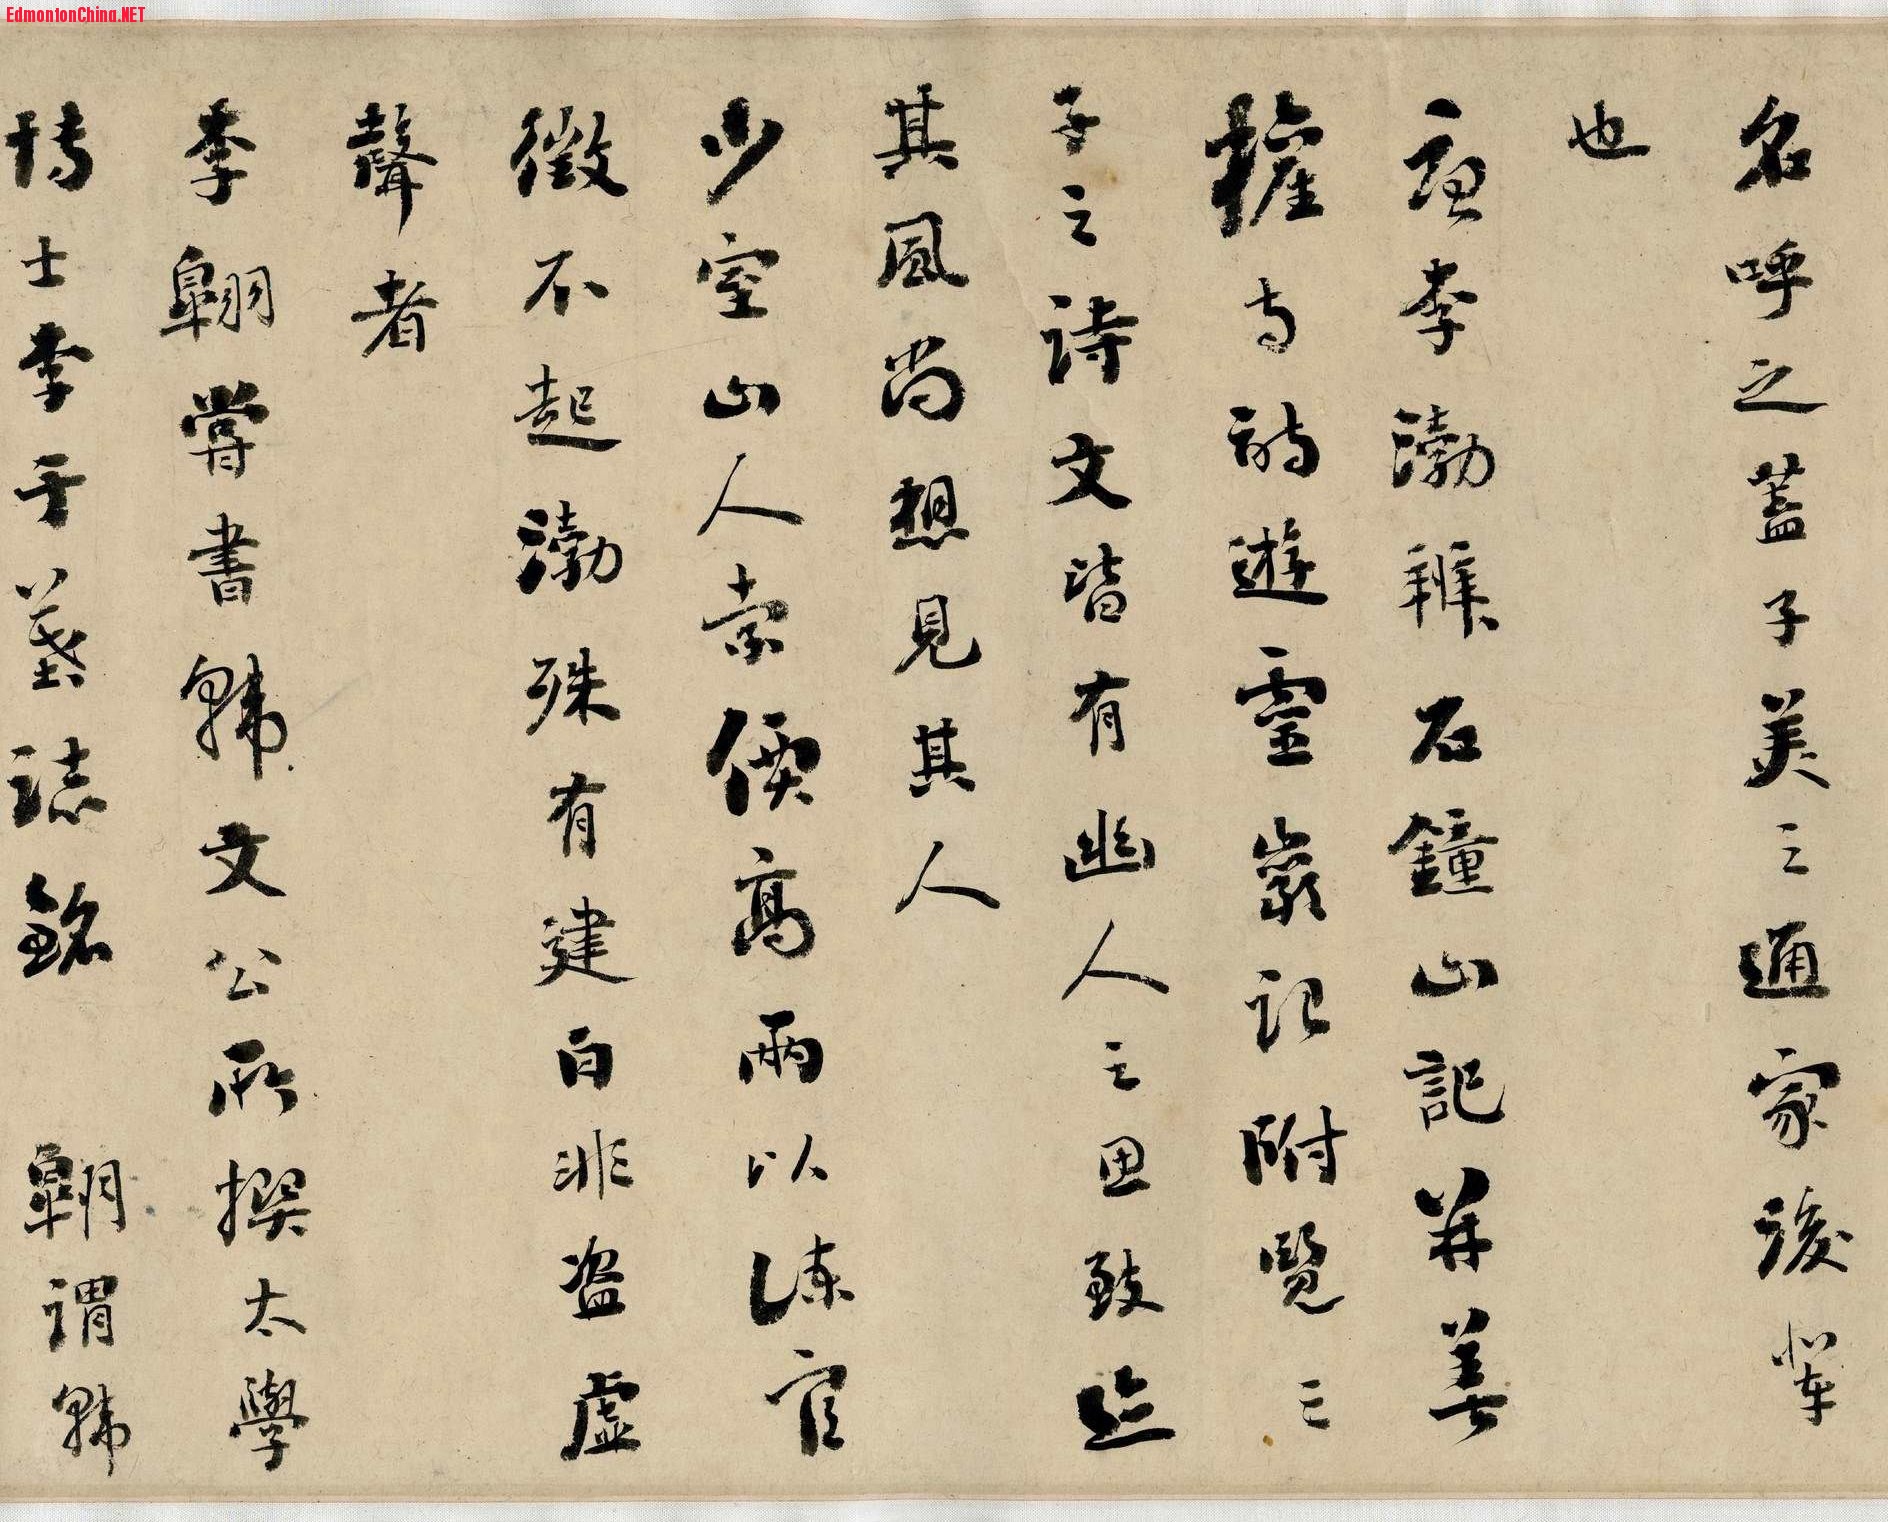 EdmontonChina.NET
名呼之蓋子美之通家後輩
也
李渤辨石鐘山記并善
權寺詩遊靈巖記附覽三
子之詩文皆有幽人之思致迹
其風尚想見其人
少室山人索價高兩以諫官
徵不起渤殊有建白非盗虛
聲者
李翱嘗書韩文公所撰太學
博士李于墓誌銘 翱謂韩